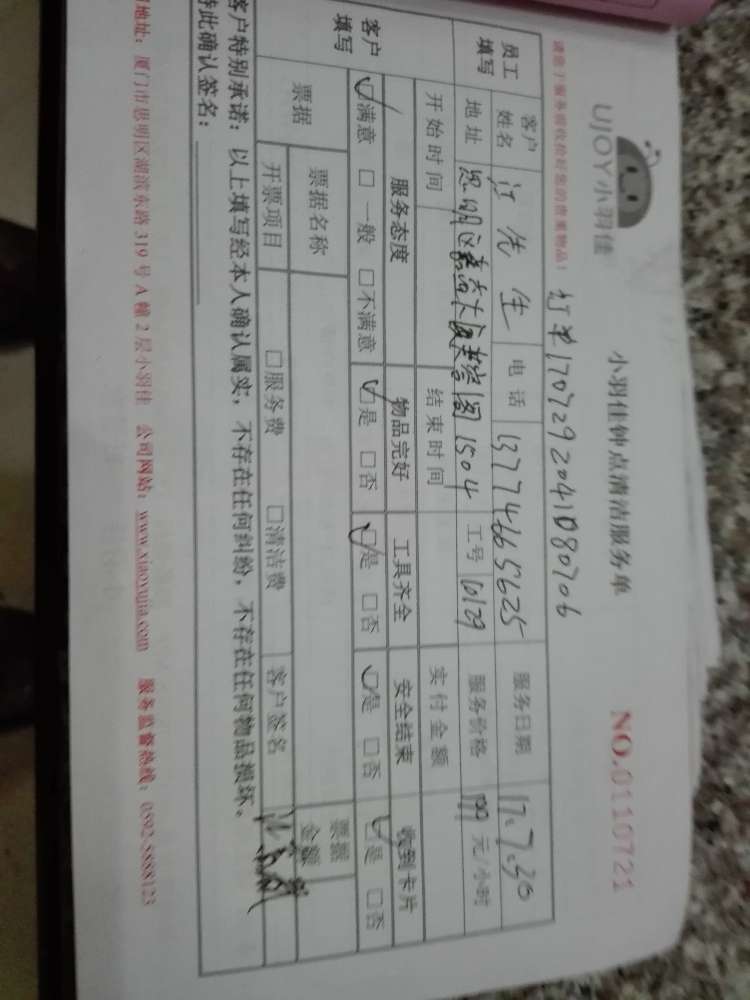 UJOY小羽佳
小羽佳钟点清洁服务单
NO.0110721
请您于服务前收捡好您的贵重物品！
订单1707292041080706
员工填写
客户姓名 江先生 电话 13774665625 服务日期 17.7.30
地址 思明区 1504 工号 10129 服务价格 元/小时
开始时间 结束时间 实付金额
客户填写
服务态度 物品完好 工具齐全 安全结束 收到卡片
☑满意 □一般 □不满意 ☑是 □否 ☑是 □否 ☑是 □否 ☑是 □否
票据 票据名称 票据金额
开票项目 □服务费 □清洁费 客户签名
客户特别承诺：以上填写经本人确认属实，不存在任何纠纷，不存在任何物品损坏。
特此确认签名：
地址：厦门市思明区湖滨东路319号A幢2层小羽佳 公司网站：www.xiaoyujia.com 服务监督热线：0592-5888123